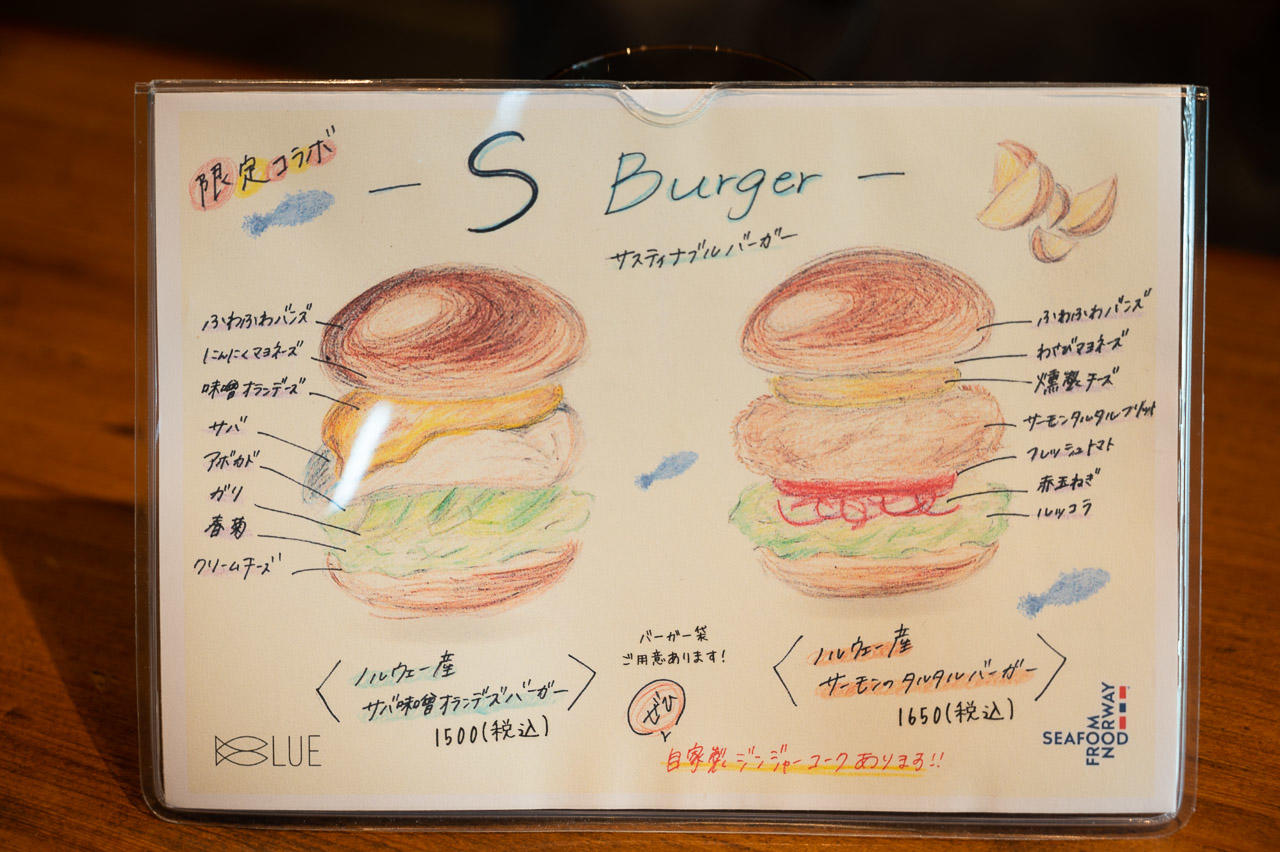 限定コラボ
— S Burger —
サスティナブルバーガー
ふわふわバンズ
にんにくマヨネーズ
味噌オランデーズ
サバ
アボカド
ガリ
春菊
クリームチーズ
ふわふわバンズ
わさびマヨネーズ
燻製チーズ
サーモンタルタルフリット
フレッシュトマト
赤玉ねぎ
ルッコラ
〈ノルウェー産
サバ味噌オランデーズバーガー〉
1500(税込)
バーガー袋
ご用意あります!
ぜひ
〈ノルウェー産
サーモンのタルタルバーガー〉
1650(税込)
自家製ジンジャーコークあります!!
BLUE
SEAFOOD
FROM
NORWAY